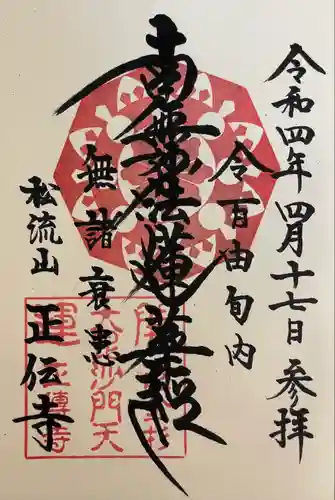 令和四年四月十七日 参拝
令百由旬内
南無妙法蓮華経
無諸衰患
松流山 正伝寺